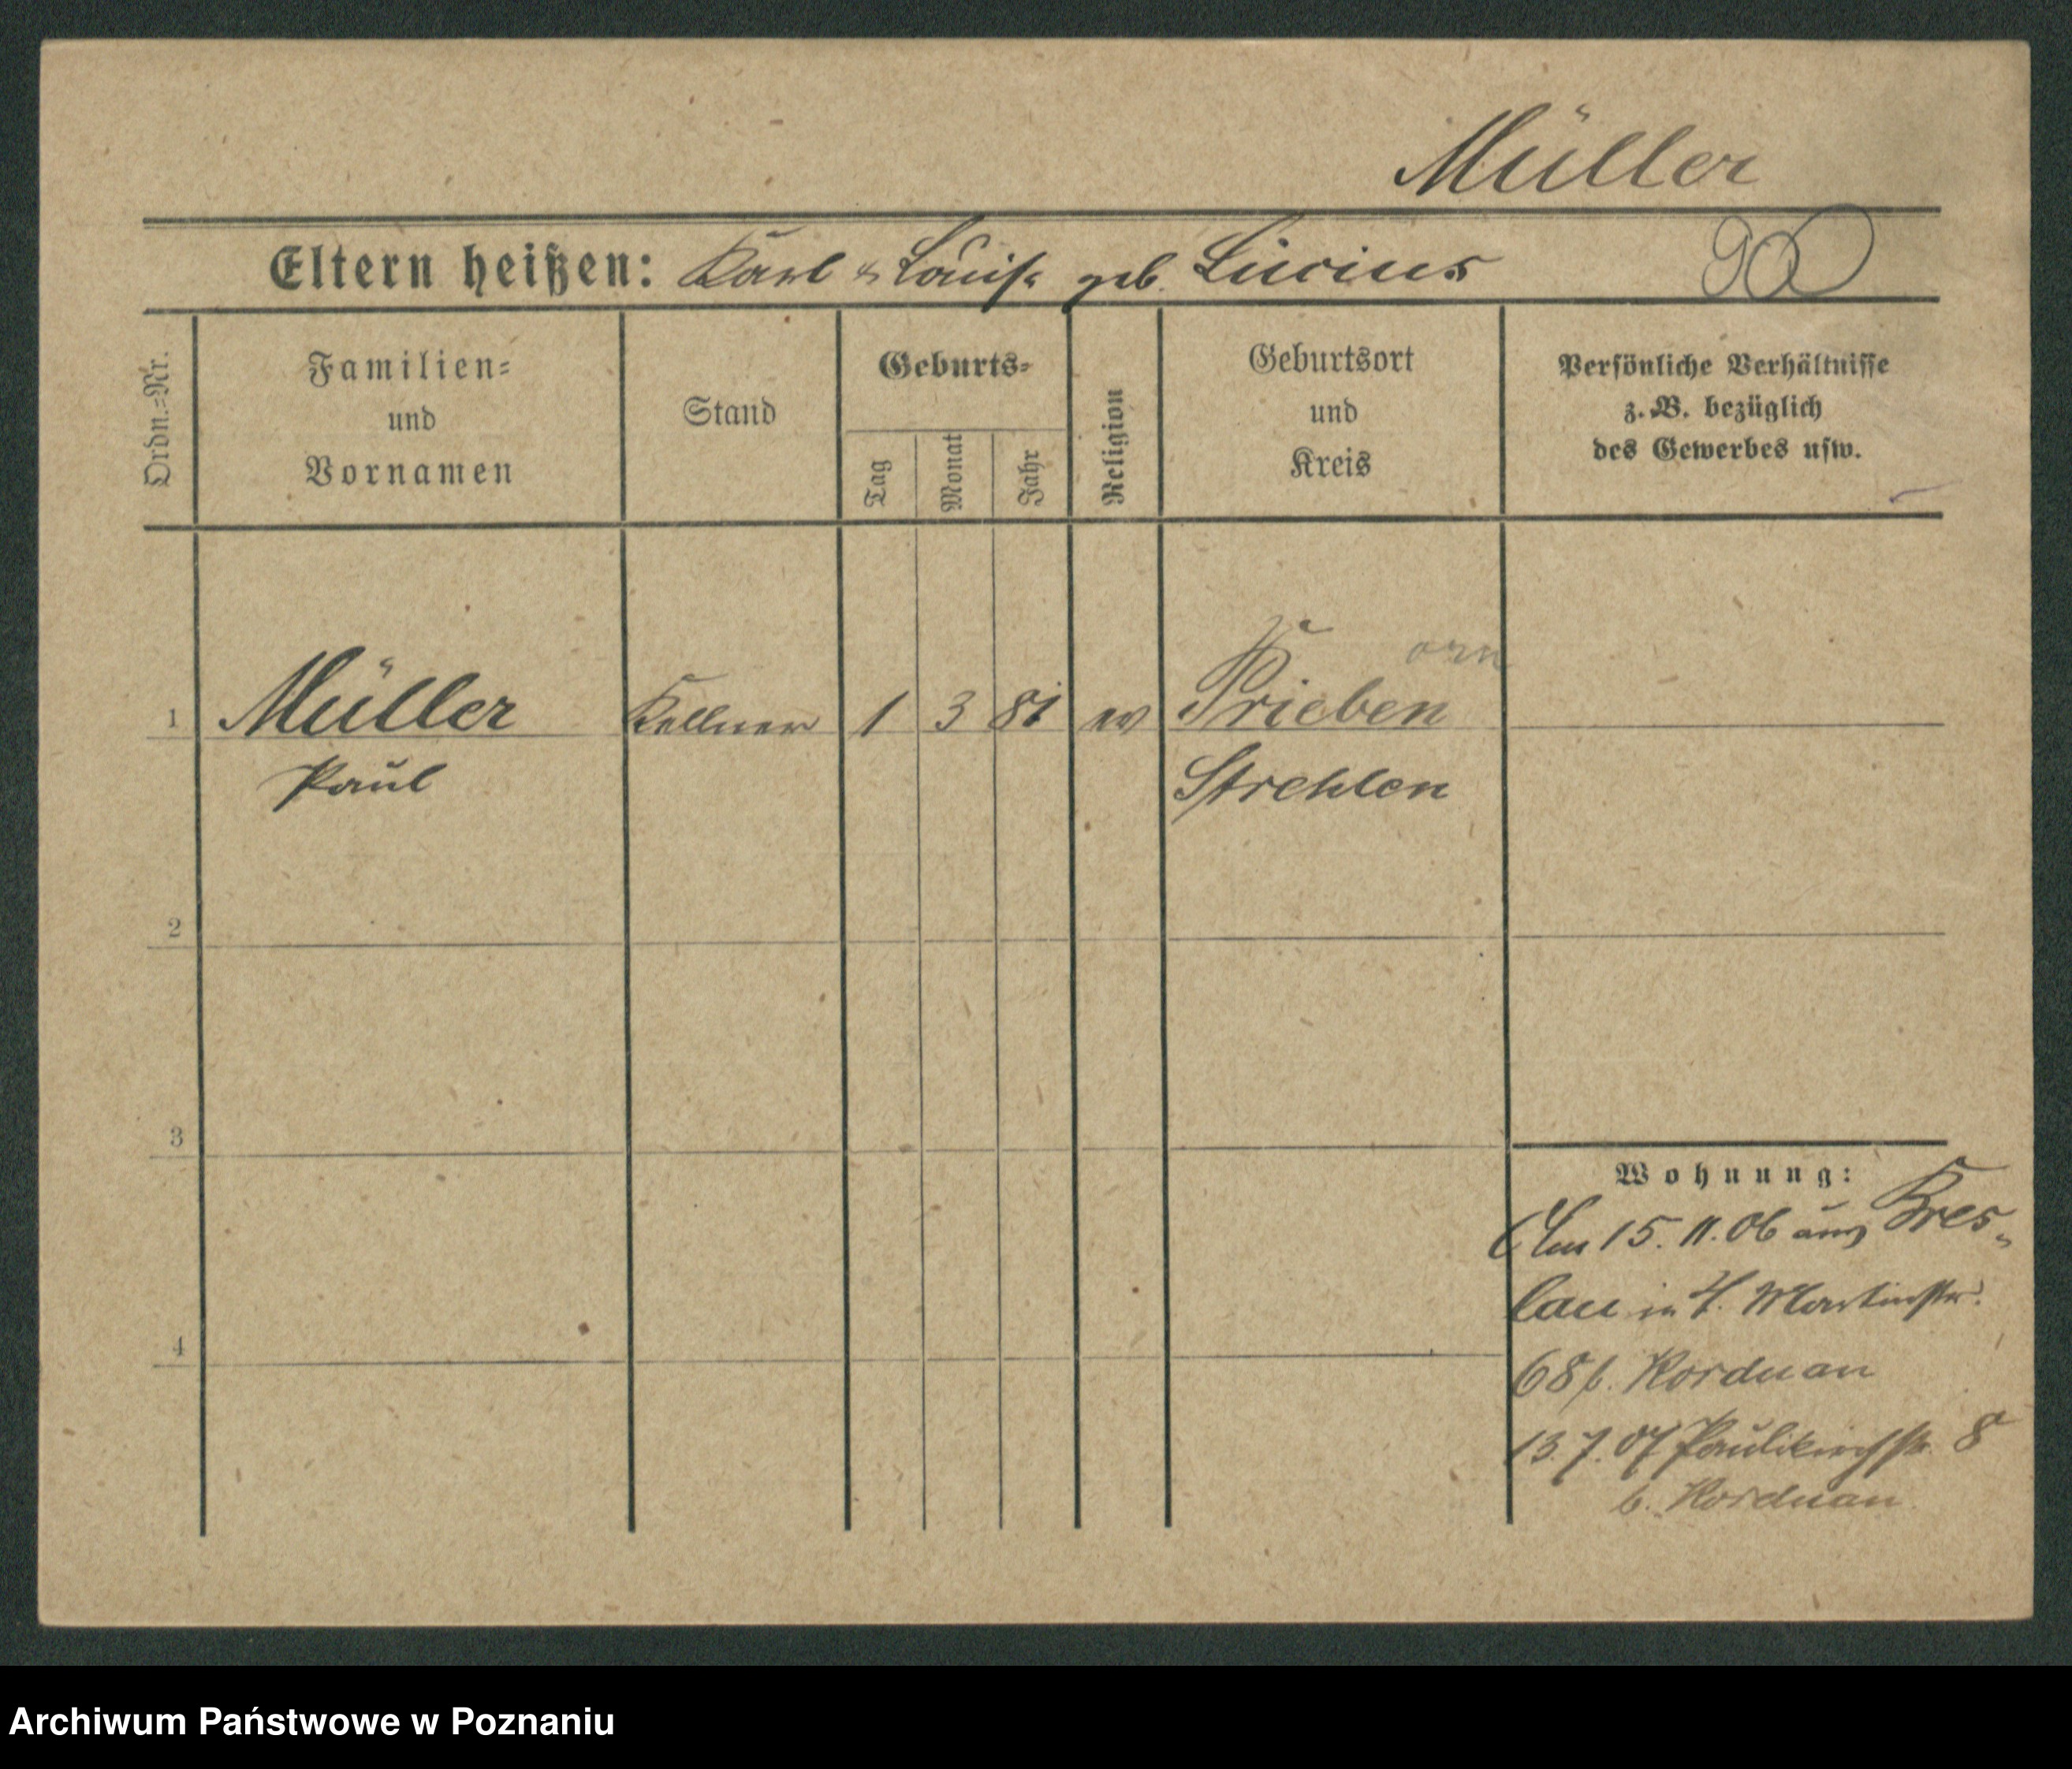 Müller
Eltern heißen: Karl & Louise geb. Lucius
Ordn.=Nr.
Familien=
und
Vornamen
Stand
Geburts=
Tag
Monat
Jahr
Religion
Geburtsort
und
Kreis
Persönliche Verhältnisse
z. B. bezüglich
des Gewerbes usw.
orn
1 Müller Kellner 1 3 81 ev Prieben
Paul Strehlen
2
3
4
Wohnung:
Am 15. 11. 06 aus Bres„
lau in Martinstr.
68 b. Korduan
13. 7. 07 Paulikirchstr. 8
b. Korduan
Archiwum Państwowe w Poznaniu